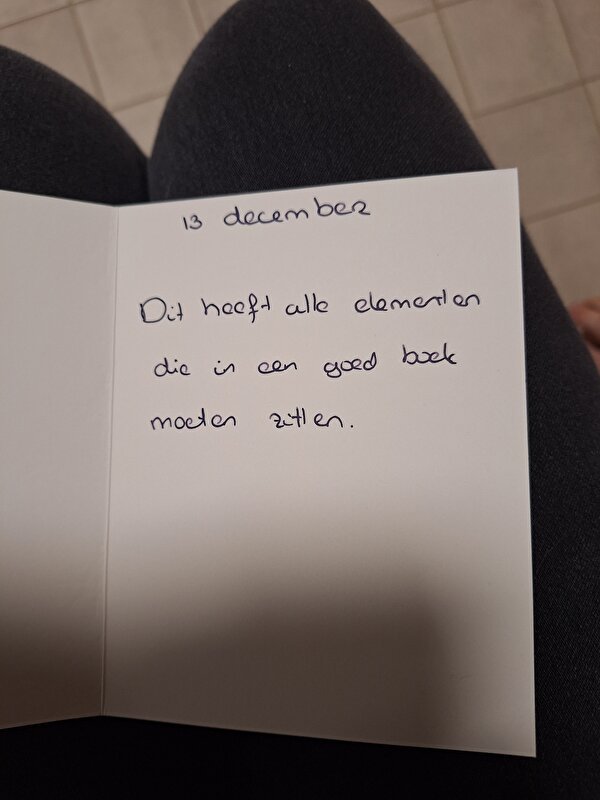 13 december
Dit heeft alle elementen
die in een goed boek
moeten zitten.